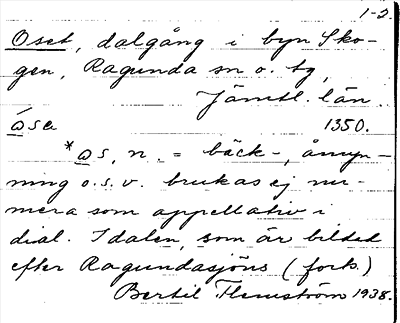 1-2.
Oset, dalgång i byn Sko-
gen, Ragunda sn o. tg,
Jämtl. län.
åse 1350.
*os, n. = bäck-, åmyn-
ning o.s.v. brukas ej nu-
mera som appellativ i
dial. I dalen, som är bildad
efter Ragundasjöns (forts.)
Bertil Flemström 1938.